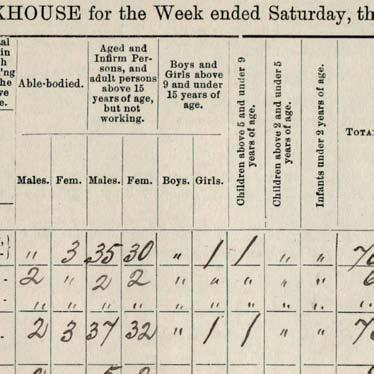 KHOUSE for the Week ended Saturday, th
Able-bodied.
Aged and
Infirm Per-
sons, and
adult persons
above 15
years of age,
but not
working.
Boys and
Girls above
9 and under
15 years of
age.
Children above 5 and under 9
years of age.
Children above 2 and under 5
years of age.
Infants under 2 years of age.
TOTA
Males. Fem. Males. Fem. Boys. Girls.
" 3 35 30 " 1 1 " " 70
2 " 2 2 " " " " " 6
" " " " " " " " "
2 3 37 32 " 1 1 " " 76